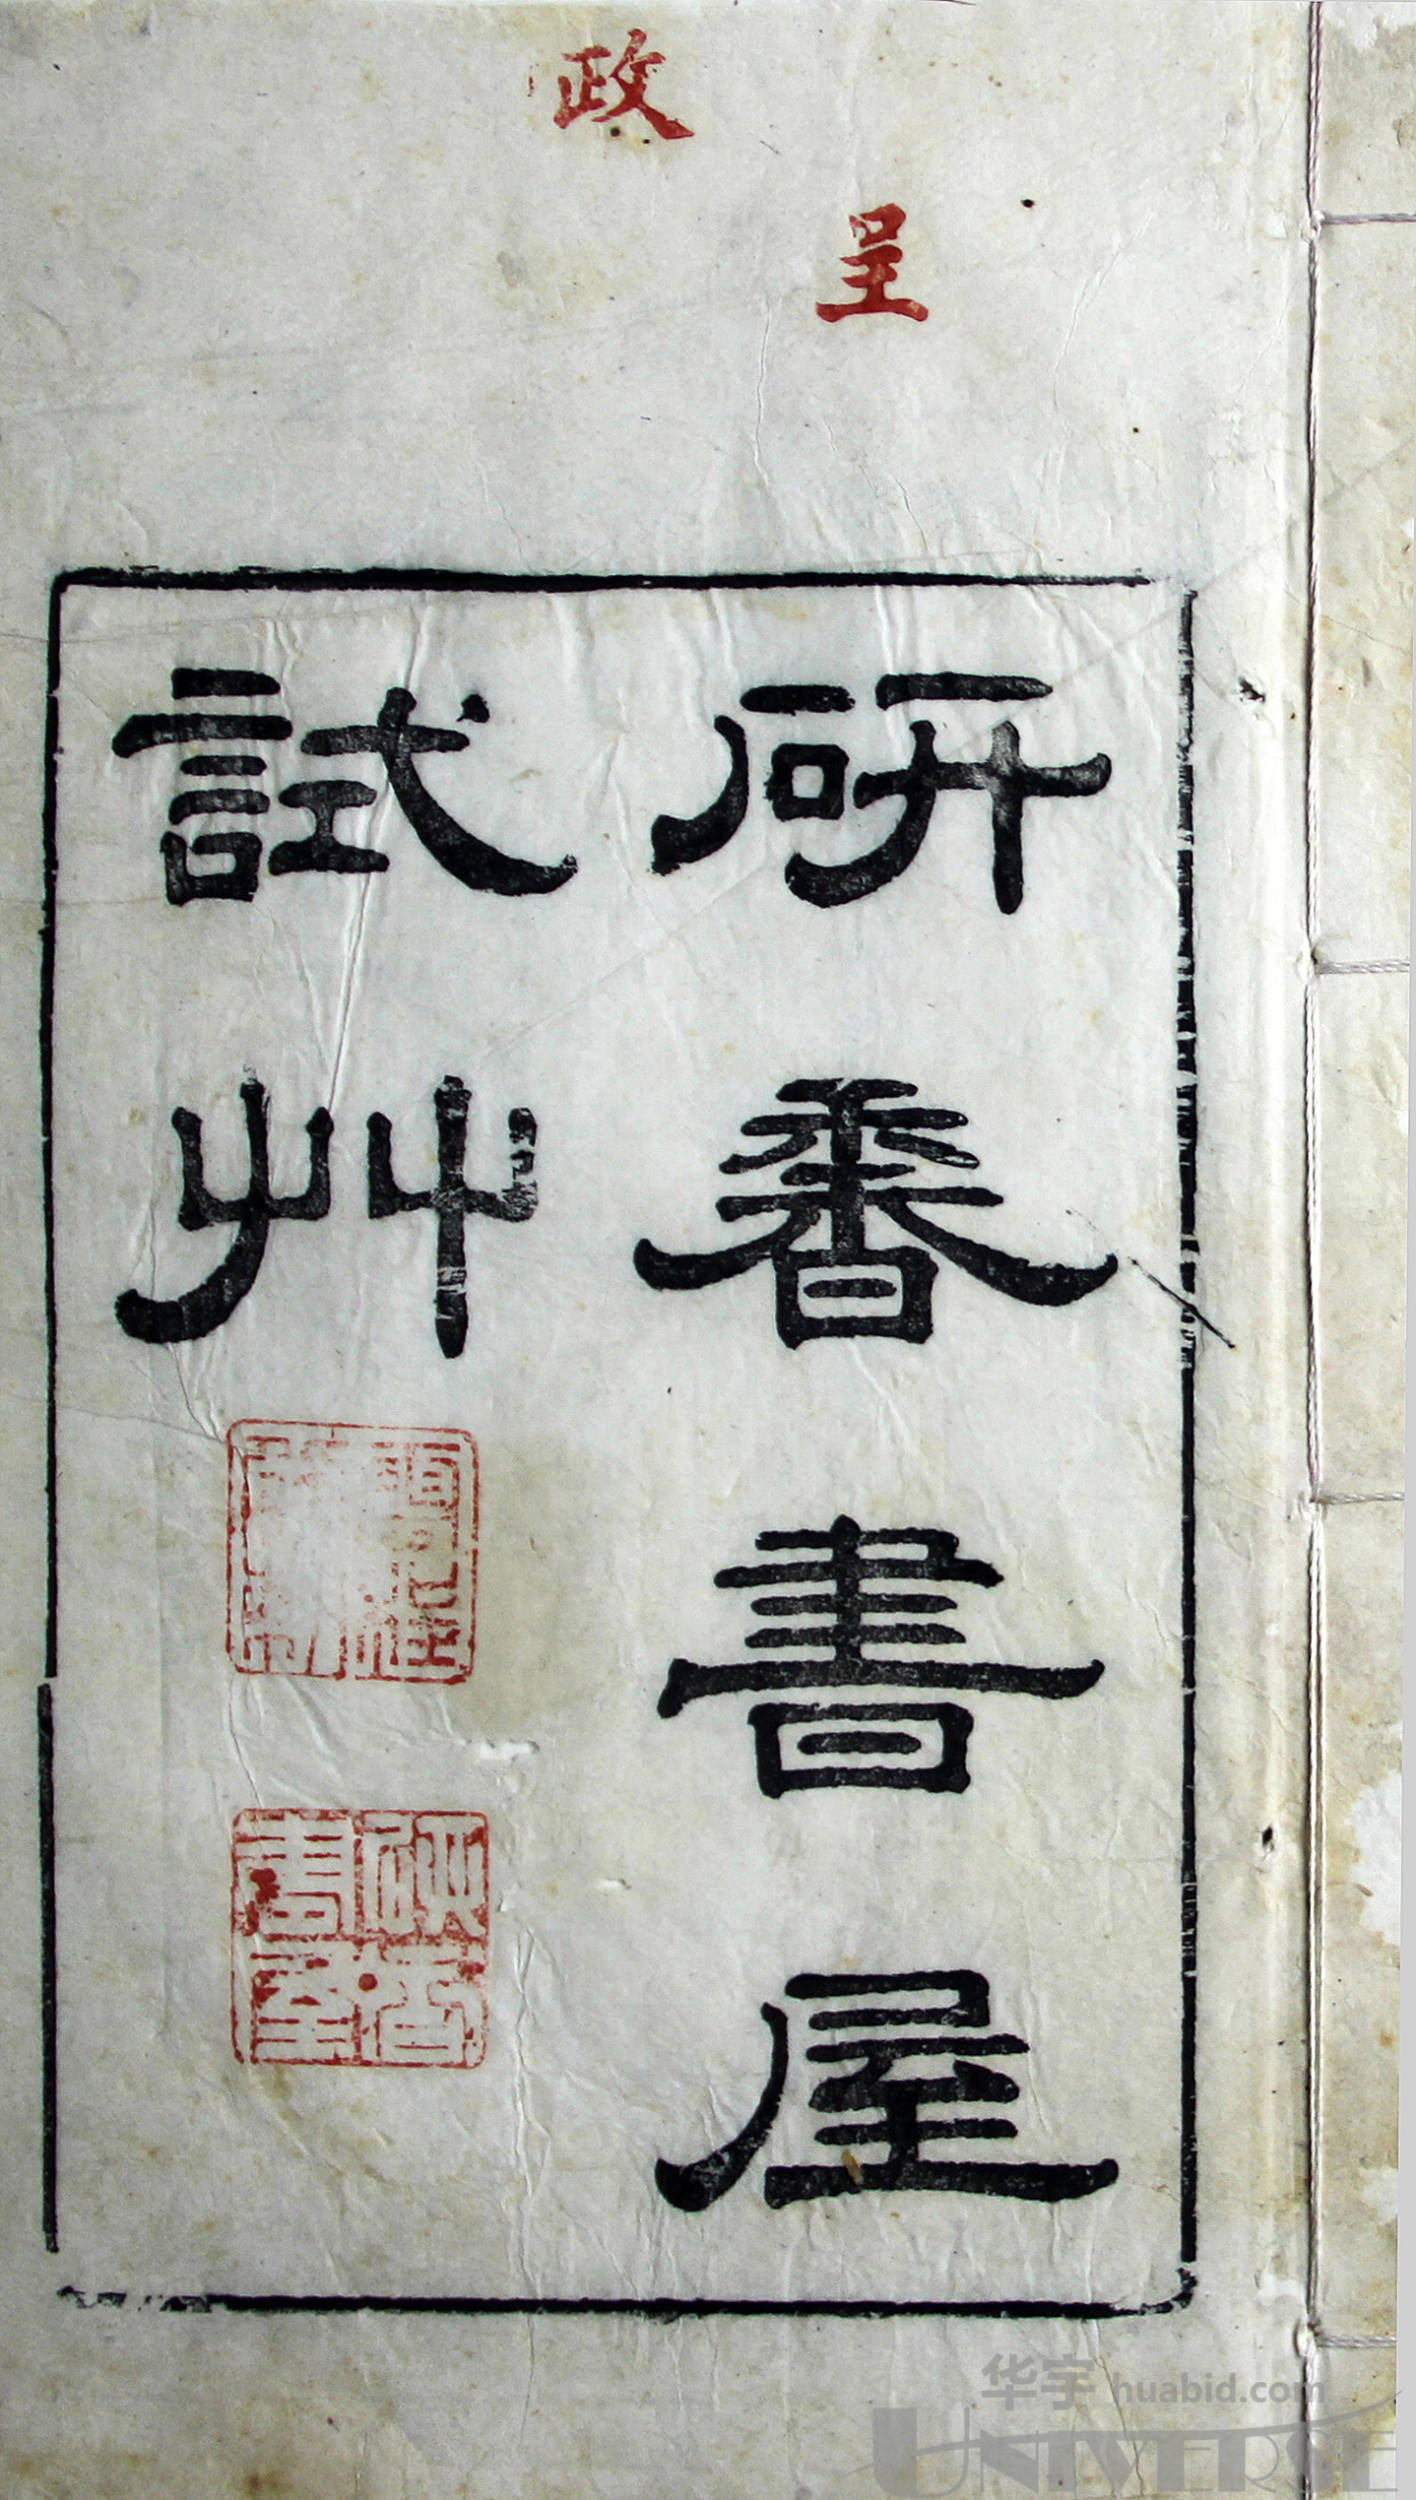 呈
政
研香書屋
試艸
研香書屋
华宇 huabid.com
UNIVERSE